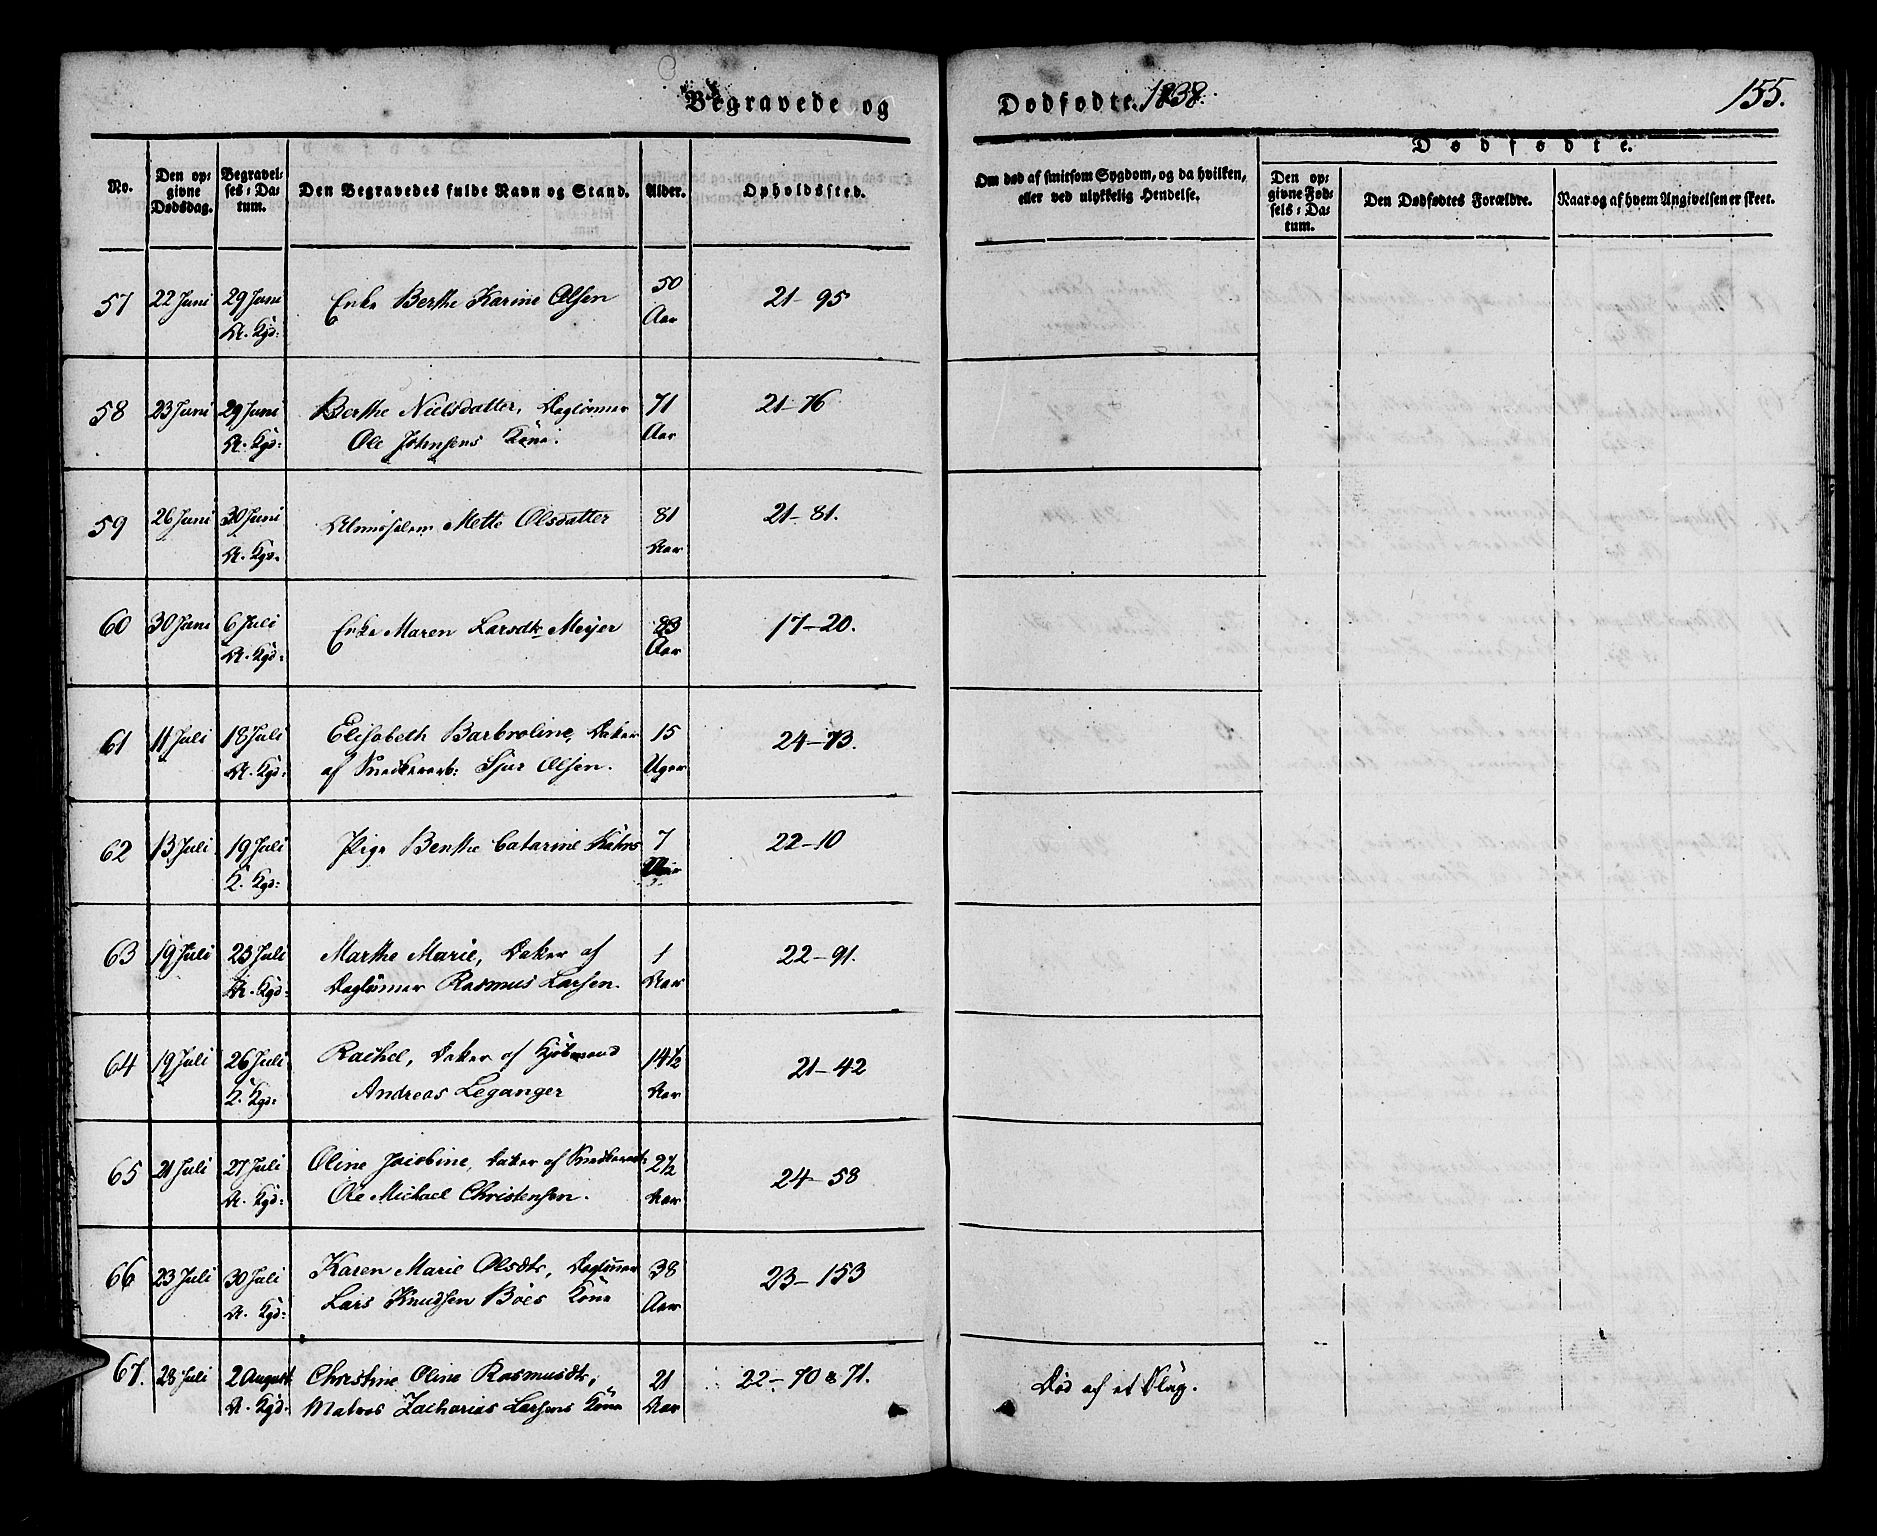 Begravede og
Dødfødte. 1838.
155.
No.
Den opgivne Dødsdag.
Begravelses-Datum.
Den Begravedes fulde Navn og Stand.
Alder.
Opholdssted.
Om død af smitsom Sygdom, og da hvilken, eller ved ulykkelig Hendelse.
Dødfødte.
Den opgivne Fødsels-Datum.
Den Dødfødtes Forældre.
Naar og af hvem Angivelsen er skeet.
57 22 Juni 29 Juni Enke Berthe Karine Olsen 50 21-95
A. Kgd: Aar
58 23 Juni 29 Juni Berthe Nielsdatter, Daglønner 71 21-76
A. Kgd: Ole Johnsens Kone. Aar
59 26 Juni 30 Juni Almislem Mette Olsdatter 81 21-81.
A. Kgd. Aar
60 30 Juni 6 Juli Enke Maren Larsdtr Meyer 17-20.
A. Kgd: Aar
61 11 Juli 18 Juli Elisabeth Barbroline, Datter 15 24-73.
A. Kgd: af Snedkersv: Sjur Olsen. Uger
62 13 Juli 19 Juli Pige Benthe Catarine 7 22-10
K. Kgd:
63 19 Juli 23 Juli Marthe Marie, Datter af 1 22-91.
A. Kgd: Daglønner Rasmus Larsen. Aar
64 19 Juli 26 Juli Rachel, Datter af Kjøbmand 14½ 21-42
K. Kgd: Andreas Leganger Aar
65 21 Juli 27 Juli Oline Jacobine, Datter af 2½ 24-58
A. Kgd: Ole Michael Christensen. Aar
66 23 Juli 30 Juli Karen Marie Olsdtr, Daglønner 38 23-153
A. Kgd: Lars Knudsen Böes Kone Aar
67. 28 Juli 2 August Christine Oline Rasmusdtr, 21 22-70 & 71. Død af et Slag.
A. Kgd: Matros Zacharias Larsens Kone Aar